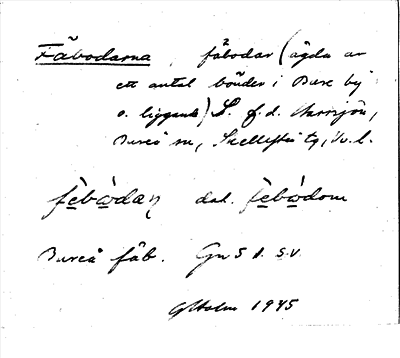 Fäbodarna, fäbodar (ägda av
ett antal bönder i Bure by
o. liggande) S. f.d.
Bureå sn, Skellefteå tg, Vb. l.
fèbὼdaɳ dat. fèbὼdom
Bureå fäb. GW 5 d. S.V.
G Holm 1945